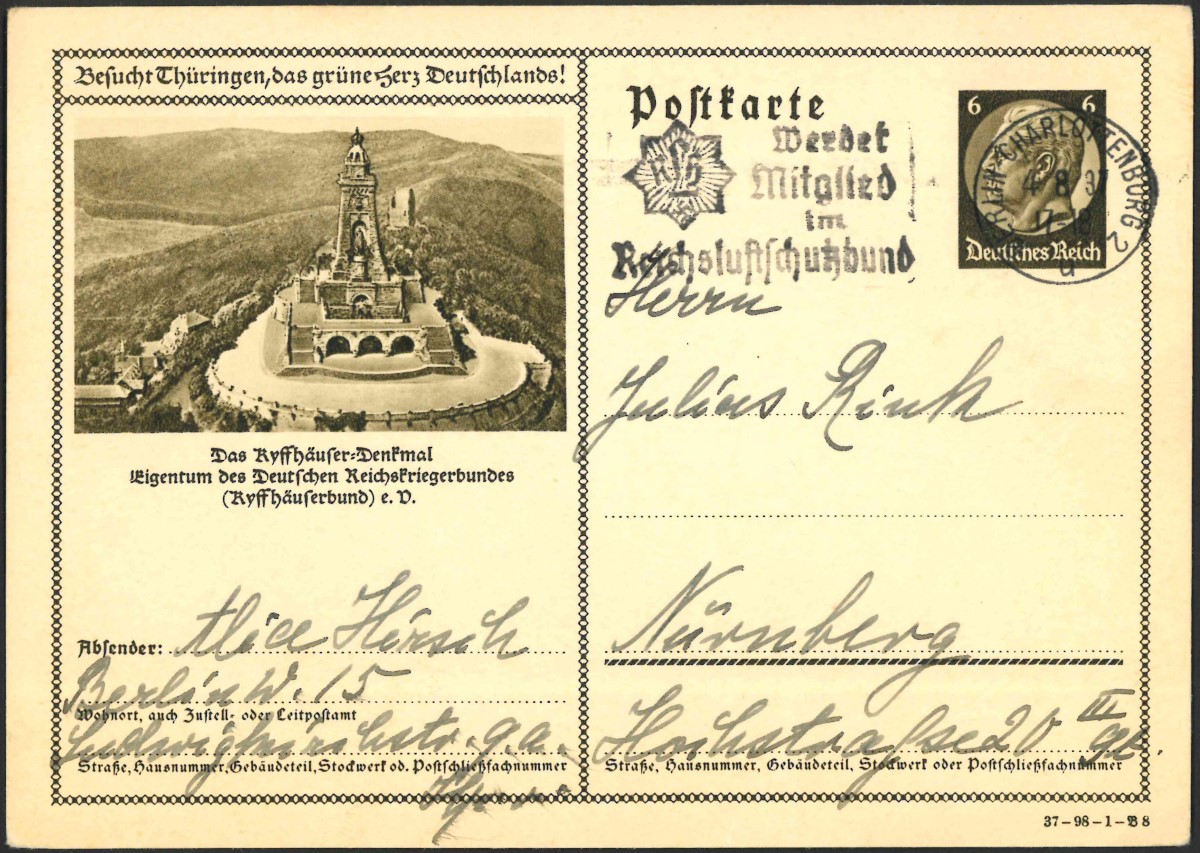 Besucht Thüringen, das grüne Herz Deutschlands!
Das Kyffhäuser-Denkmal
Eigentum des Deutschen Reichskriegerbundes
(Kyffhäuserbund) e. V.
Absender: Alice Hirsch
Berlin W. 15
Wohnort, auch Zustell- oder Leitpostamt
Straße, Hausnummer, Gebäudeteil, Stockwerk od. Postschließfachnummer
Postkarte
RLB
Werdet
Mitglied
im
Reichsluftschutzbund
6 6
Deutsches Reich
BERLIN-CHARLOTTENBURG 2
4.8.37
17-18
u
Herrn
Julius Rink
Nürnberg
Hochstraße 20 III
Straße, Hausnummer, Gebäudeteil, Stockwerk oder Postschließfachnummer
37-98-1-B 8